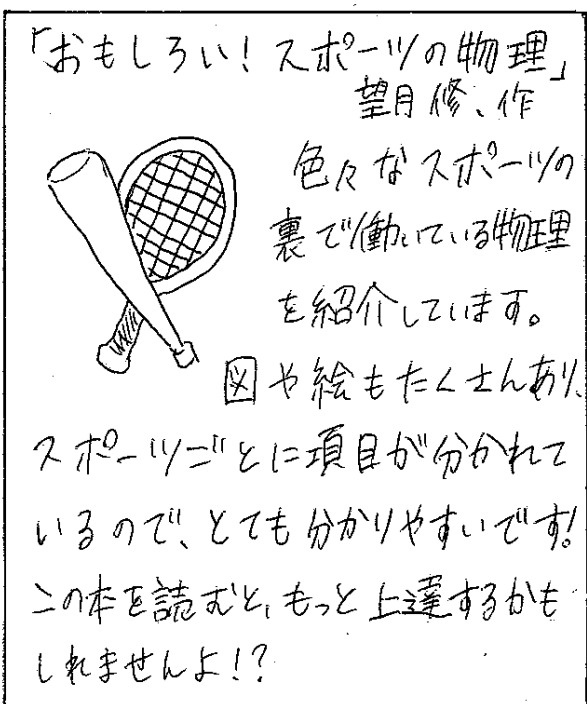 「おもしろい！スポーツの物理」
望月修、作
色々なスポーツの
裏で働いている物理
を紹介しています。
図や絵もたくさんあり、
スポーツごとに項目が分かれて
いるので、とても分かりやすいです!
この本を読むと、もっと上達するかも
しれませんよ！？